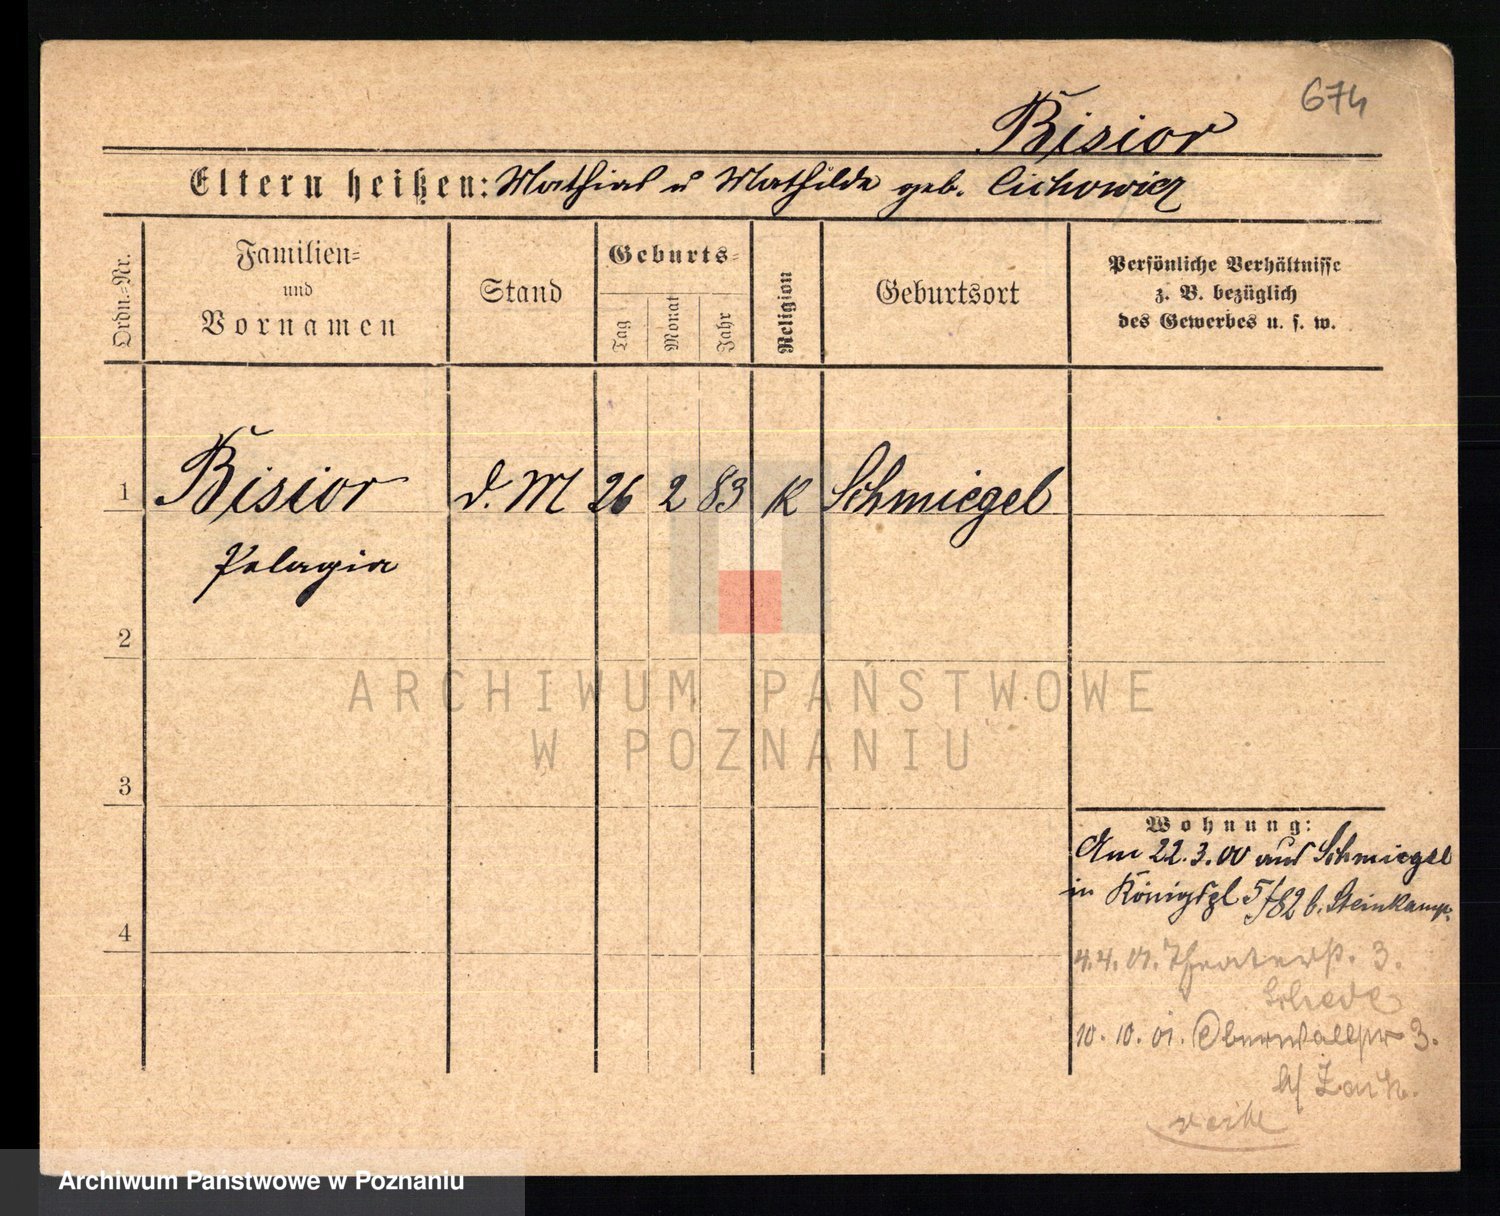 674
Bisior
Eltern heißen: Mathias u Mathilde geb. Cichowicz
Ordn.-Nr.
Familien-
und
Vornamen
Stand
Geburts-
Tag
Monat
Jahr
Religion
Geburtsort
Persönliche Verhältnisse
z. B. bezüglich
des Gewerbes u. s. w.
1 Bisior d. M 26 2 83 K Schmiegel
Pelagia
2
3
4
Wohnung:
Am 22.3.00 aus Schmiegel
in Königspl 5/782 b. Steinkamp.
4.4.01. Theaterstr. 3.
Schede
10.10.01. Oberwallstr 3.
ARCHIWUM PAŃSTWOWE
W POZNANIU
Archiwum Państwowe w Poznaniu